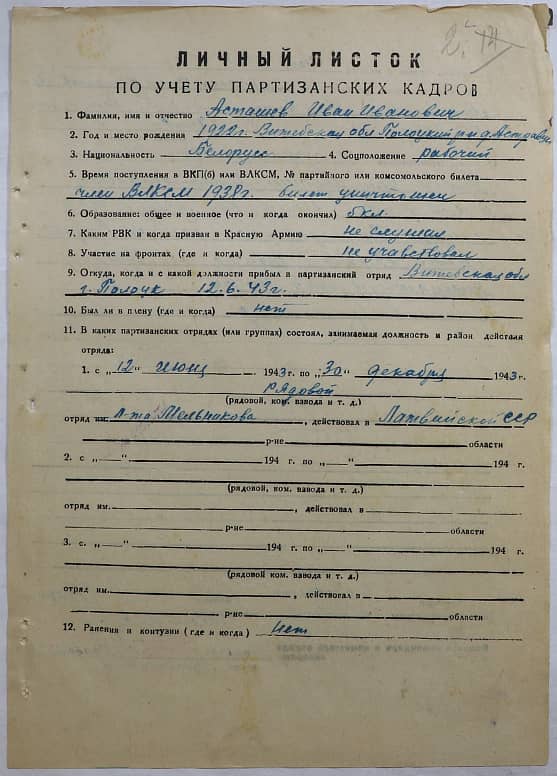 2. 14
ЛИЧНЫЙ ЛИСТОК
ПО УЧЕТУ ПАРТИЗАНСКИХ КАДРОВ
1. Фамилия, имя и отчество Асташев Иван Иванович
2. Год и место рождения 1922г. Витебская обл Полоцкий р-н д.
3. Национальность Белорусс 4. Соцположение рабочий
5. Время поступления в ВКП(б) или ВЛКСМ, № партийного или комсомольского билета
член ВЛКСМ 1938г. билет уничтожен
6. Образование: общее и военное (что и когда окончил) 5кл.
7. Каким РВК и когда призван в Красную Армию не служил
8. Участие на фронтах (где и когда) не учавствовал
9. Откуда, когда и с какой должности прибыл в партизанский отряд Витебская обл
г. Полоцк 12.6.43г.
10. Был ли в плену (где и когда) нет
11. В каких партизанских отрядах (или группах) состоял, занимаемая должность и район действия
отряда:
1. с „12" июня 1943г. по „30" декабря 1943г.
Рядовой
(рядовой, ком. взвода и т. д.)
отряд им. л-та Мельникова, действовал в Латвийской ССР
р-не области
2. с „—" 194 г. по „—" 194 г.
(рядовой, ком. взвода и т. д.)
отряд им. , действовал в
р-не области
3. с „—" 194 г. по „—" 194 г.
(рядовой ком. взвода и т. д.)
отряд им. , действовал в
р-не области
12. Ранения и контузии (где и когда) нет